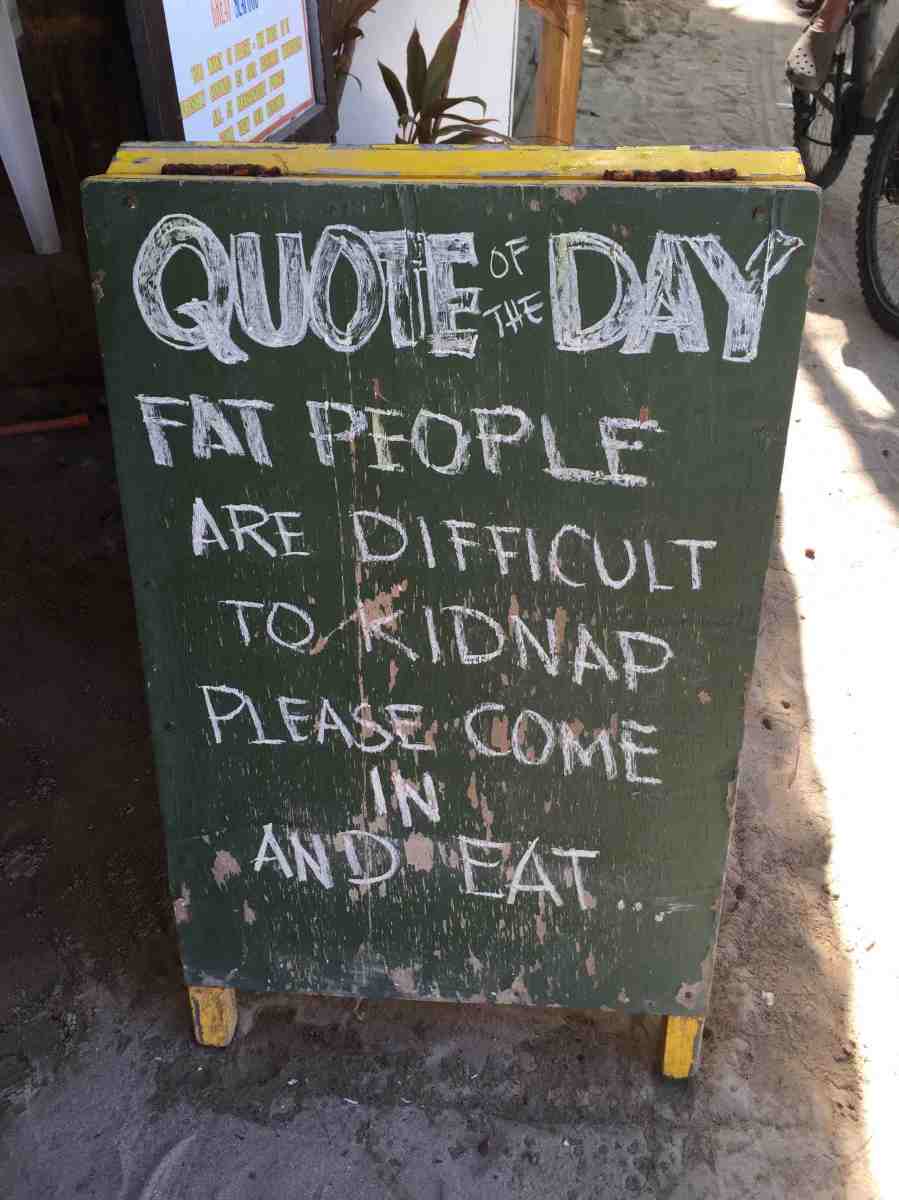 GREAT SEAFOOD
QUOTE OF THE DAY
FAT PEOPLE
ARE DIFFICULT
TO KIDNAP
PLEASE COME
IN
AND EAT...